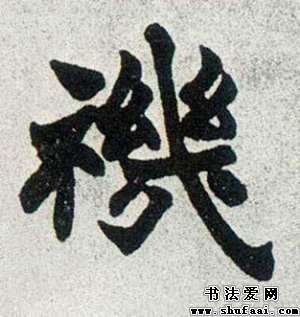 禨
书法爱网
www.shufaai.com